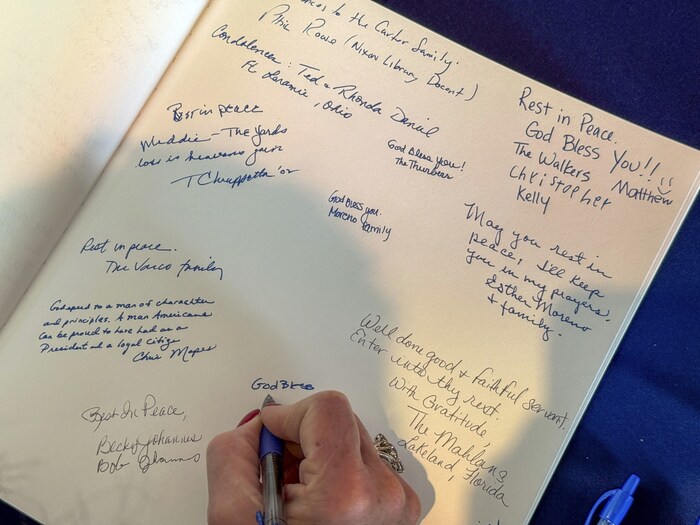 to the Carter family.
Phil Rowe (Nixon Library Docent)
Condolences: Ted & Rhonda Daniel
Ft. Loramie, Ohio
Rest in peace
The Yards
loss is heavens gain
God Bless you!
The Thurber
God Bless you.
Moreno family
Rest in Peace.
God Bless You!!
The Walkers Matthew
Christopher
Kelly
May you rest in
peace, I'll keep
you in my prayers.
Esther Moreno
& family.
Rest in peace.
The Vasco family
Godspeed to a man of character
and principles. A man Americans
can be proud to have had as a
President and a loyal citizen
Chris Mapes
God Bless
Rest In Peace,
Becky Johannes
Bob Johannes
Well done good & faithful servant.
Enter into thy rest.
With Gratitude,
The Mahlans
Lakeland, Florida